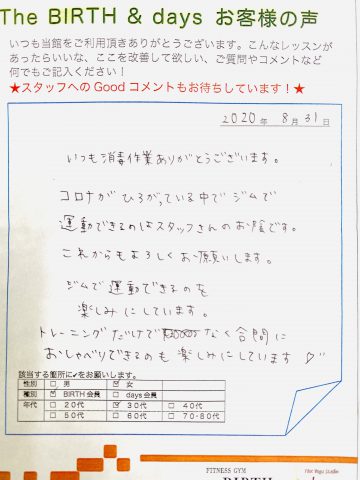 The BIRTH & days お客様の声
いつも当館をご利用頂きありがとうございます。こんなレッスンが
あったらいいな、ここを改善して欲しい、ご質問やコメントなど
何でもご記入ください！
★スタッフへのGoodコメントもお待ちしています！★
2020年 8月 31日
いつも消毒作業ありがとうございます。
コロナがひろがっている中でジムで
運動できるのはスタッフさんのお陰です。
これからもよろしくお願いします。
ジムで運動できるのを
楽しみにしています。
トレーニングだけでなく合間に
おしゃべりできるのも楽しみにしています♡
該当する箇所に✔をお願いします。
性別 □ 男 ☑ 女
種別 ☑ BIRTH会員 □ days会員
年代 □ 20代 ☑ 30代 □ 40代
□ 50代 □ 60代 □ 70-80代
FITNESS GYM
BIRTH
Hot Yoga Studio